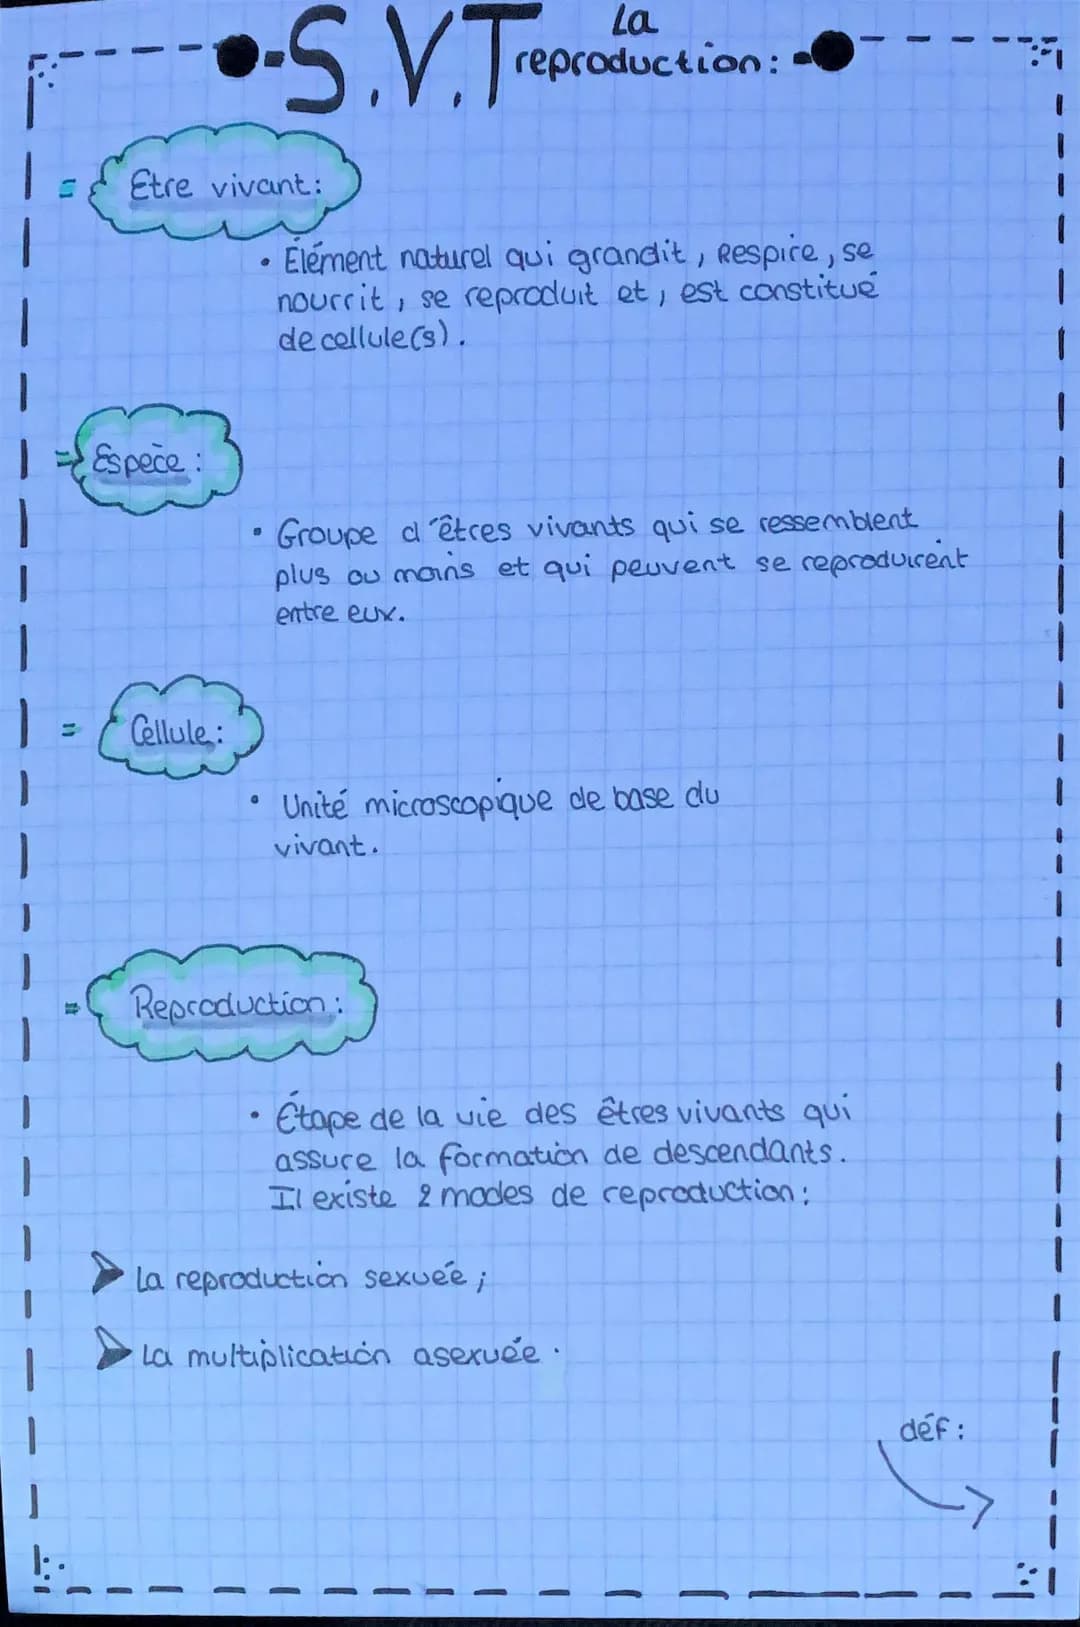 S.V.T La
reproduction:
Etre vivant:
• Elément naturel qui grandit, Respire, se
nourrit, se reproduit et, est constitué
de cellule(s).
Espèce:
• Groupe d'êtres vivants qui se ressemblent
plus ou moins et qui peuvent se reproduirent
entre eux.
Cellule:
• Unité microscopique de base du
vivant.
Reproduction:
• Étape de la vie des êtres vivants qui
assure la formation de descendants.
Il existe 2 modes de reproduction:
➤ La reproduction sexuée;
➤ La multiplication asexuée.
déf: